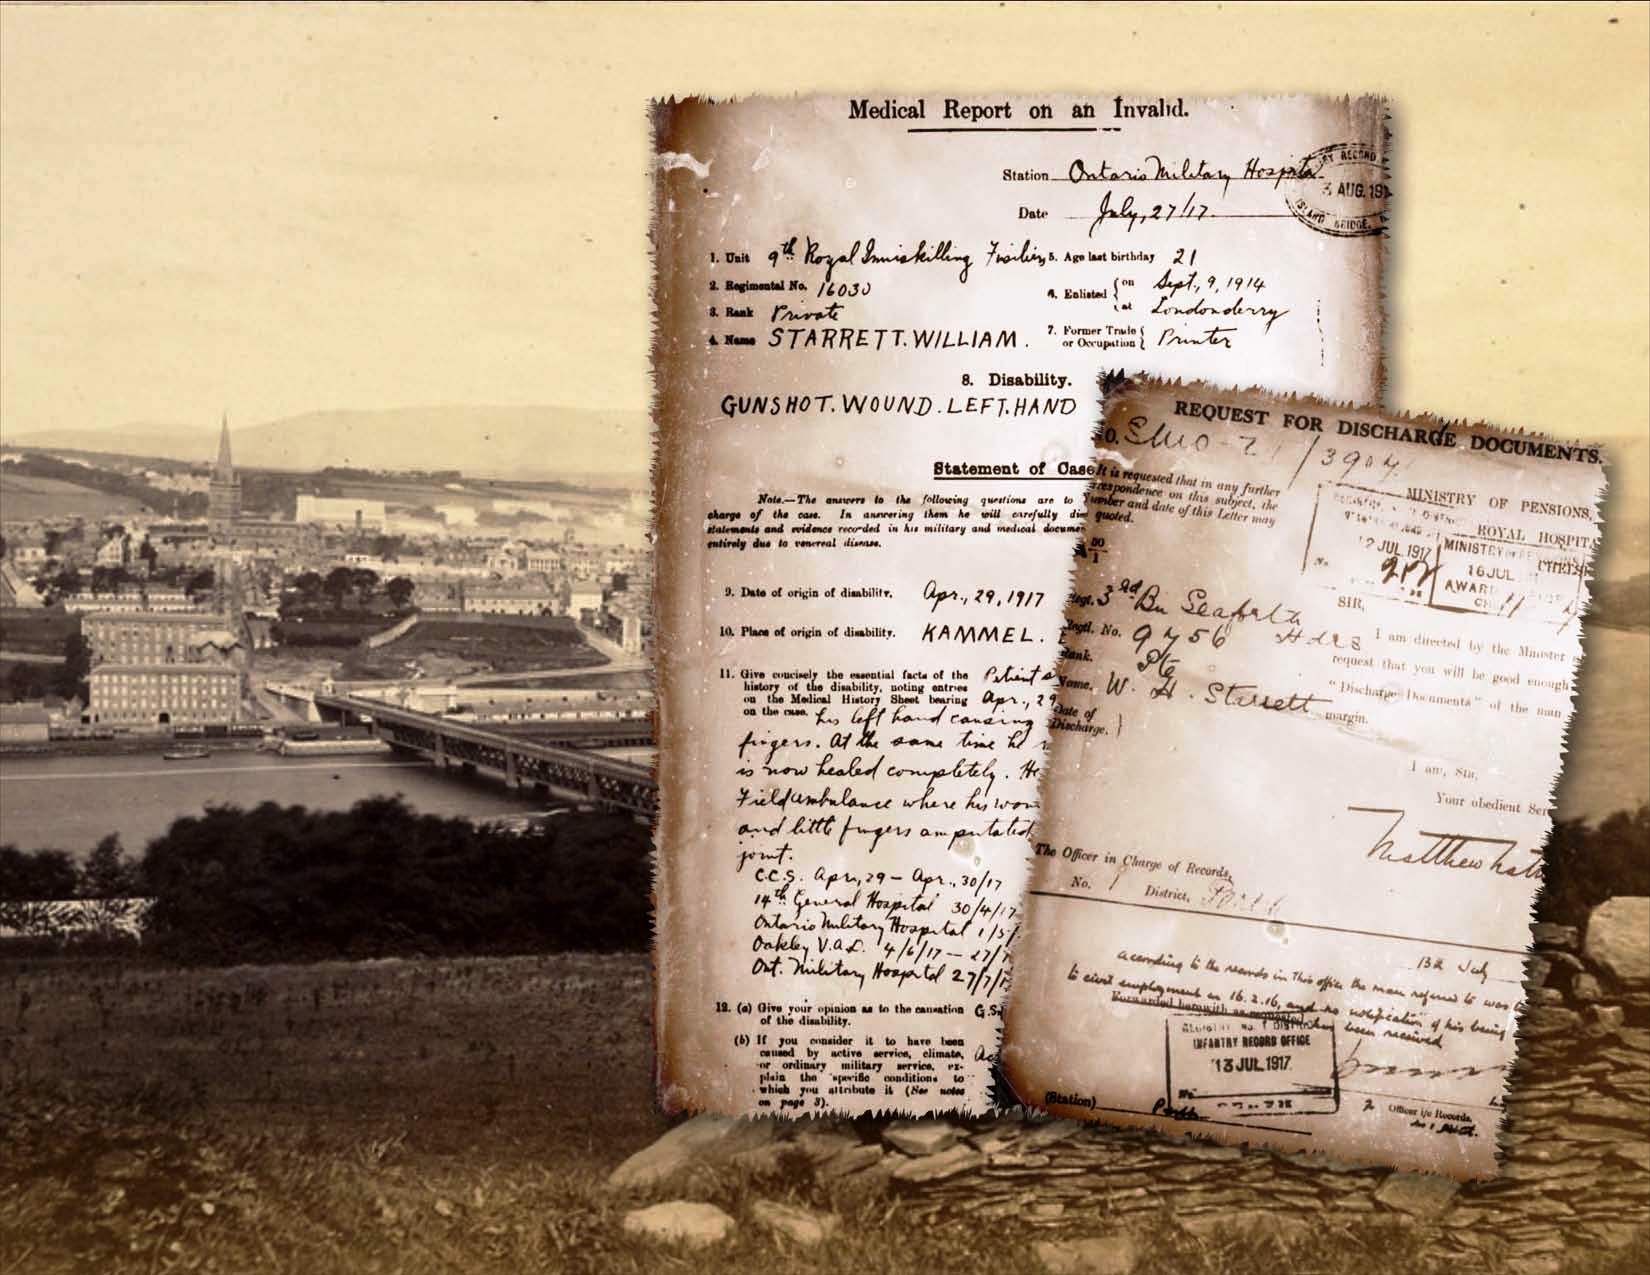 Medical Report on an Invalid.
Station Ontario Military Hospital
AUG. 191
BRIDGE.
Date July, 27/17.
1. Unit 9th Royal Inniskilling Fusiliers 5. Age last birthday 21
2. Regimental No. 16030 6. Enlisted { on Sept., 9, 1914
3. Rank Private { at Londonderry
4. Name STARRETT. WILLIAM. 7. Former Trade or Occupation } Printer
8. Disability.
GUNSHOT. WOUND. LEFT. HAND
Statement of Case
Note.—The answers to the following questions are to
charge of the case. In answering them he will carefully dis
statements and evidence recorded in his military and medical docume
entirely due to venereal disease.
9. Date of origin of disability. Apr., 29, 1917
10. Place of origin of disability. KAMMEL.
11. Give concisely the essential facts of the Patient
history of the disability, noting entries
on the Medical History Sheet bearing Apr., 29
on the case. his left hand causing
fingers. At the same time he
is now healed completely. He
Field ambulance where his
and little fingers amputated
joint.
C.C.S. Apr., 29 – Apr., 30/17
14th General Hospital 30/4/17
Ontario Military Hospital 1/5/
Oakley V.A.D. 4/6/17 – 27/7
Ont. Military Hospital 27/7/1
12. (a) Give your opinion as to the causation G.S.
of the disability.
(b) If you consider it to have been
caused by active service, climate,
or ordinary military service, ex-
plain the specific conditions to
which you attribute it (See notes
on page 3).
REQUEST FOR DISCHARGE DOCUMENTS.
/3907
It is requested that in any further
respondence on this subject, the
number and date of this Letter may
quoted.
MINISTRY OF PENSIONS,
ROYAL HOSPITA
CHELSE
12 JUL 1917
MINISTRY
16 JUL
AWAR
SIR,
Regt. 3rd Bn Seaforth Hdrs
Regtl. No. 9756
Rank. Pte
Name. W. H. Starrett
Date of
Discharge. }
I am directed by the Minister
request that you will be good enough
"Discharge Documents" of the man
margin.
I am, Sir,
Your obedient Ser
The Officer in Charge of Records,
No. 1 District, Perth
13th July
According to the records in this office the man referred to was
to civil employment on 16.2.16, and no notification of his being
Forwarded herewith as requested has been received
REGISTRY No. 1 DISTRICT
INFANTRY RECORD OFFICE
13 JUL 1917
No
(Station) Perth
Officer i/c Records,